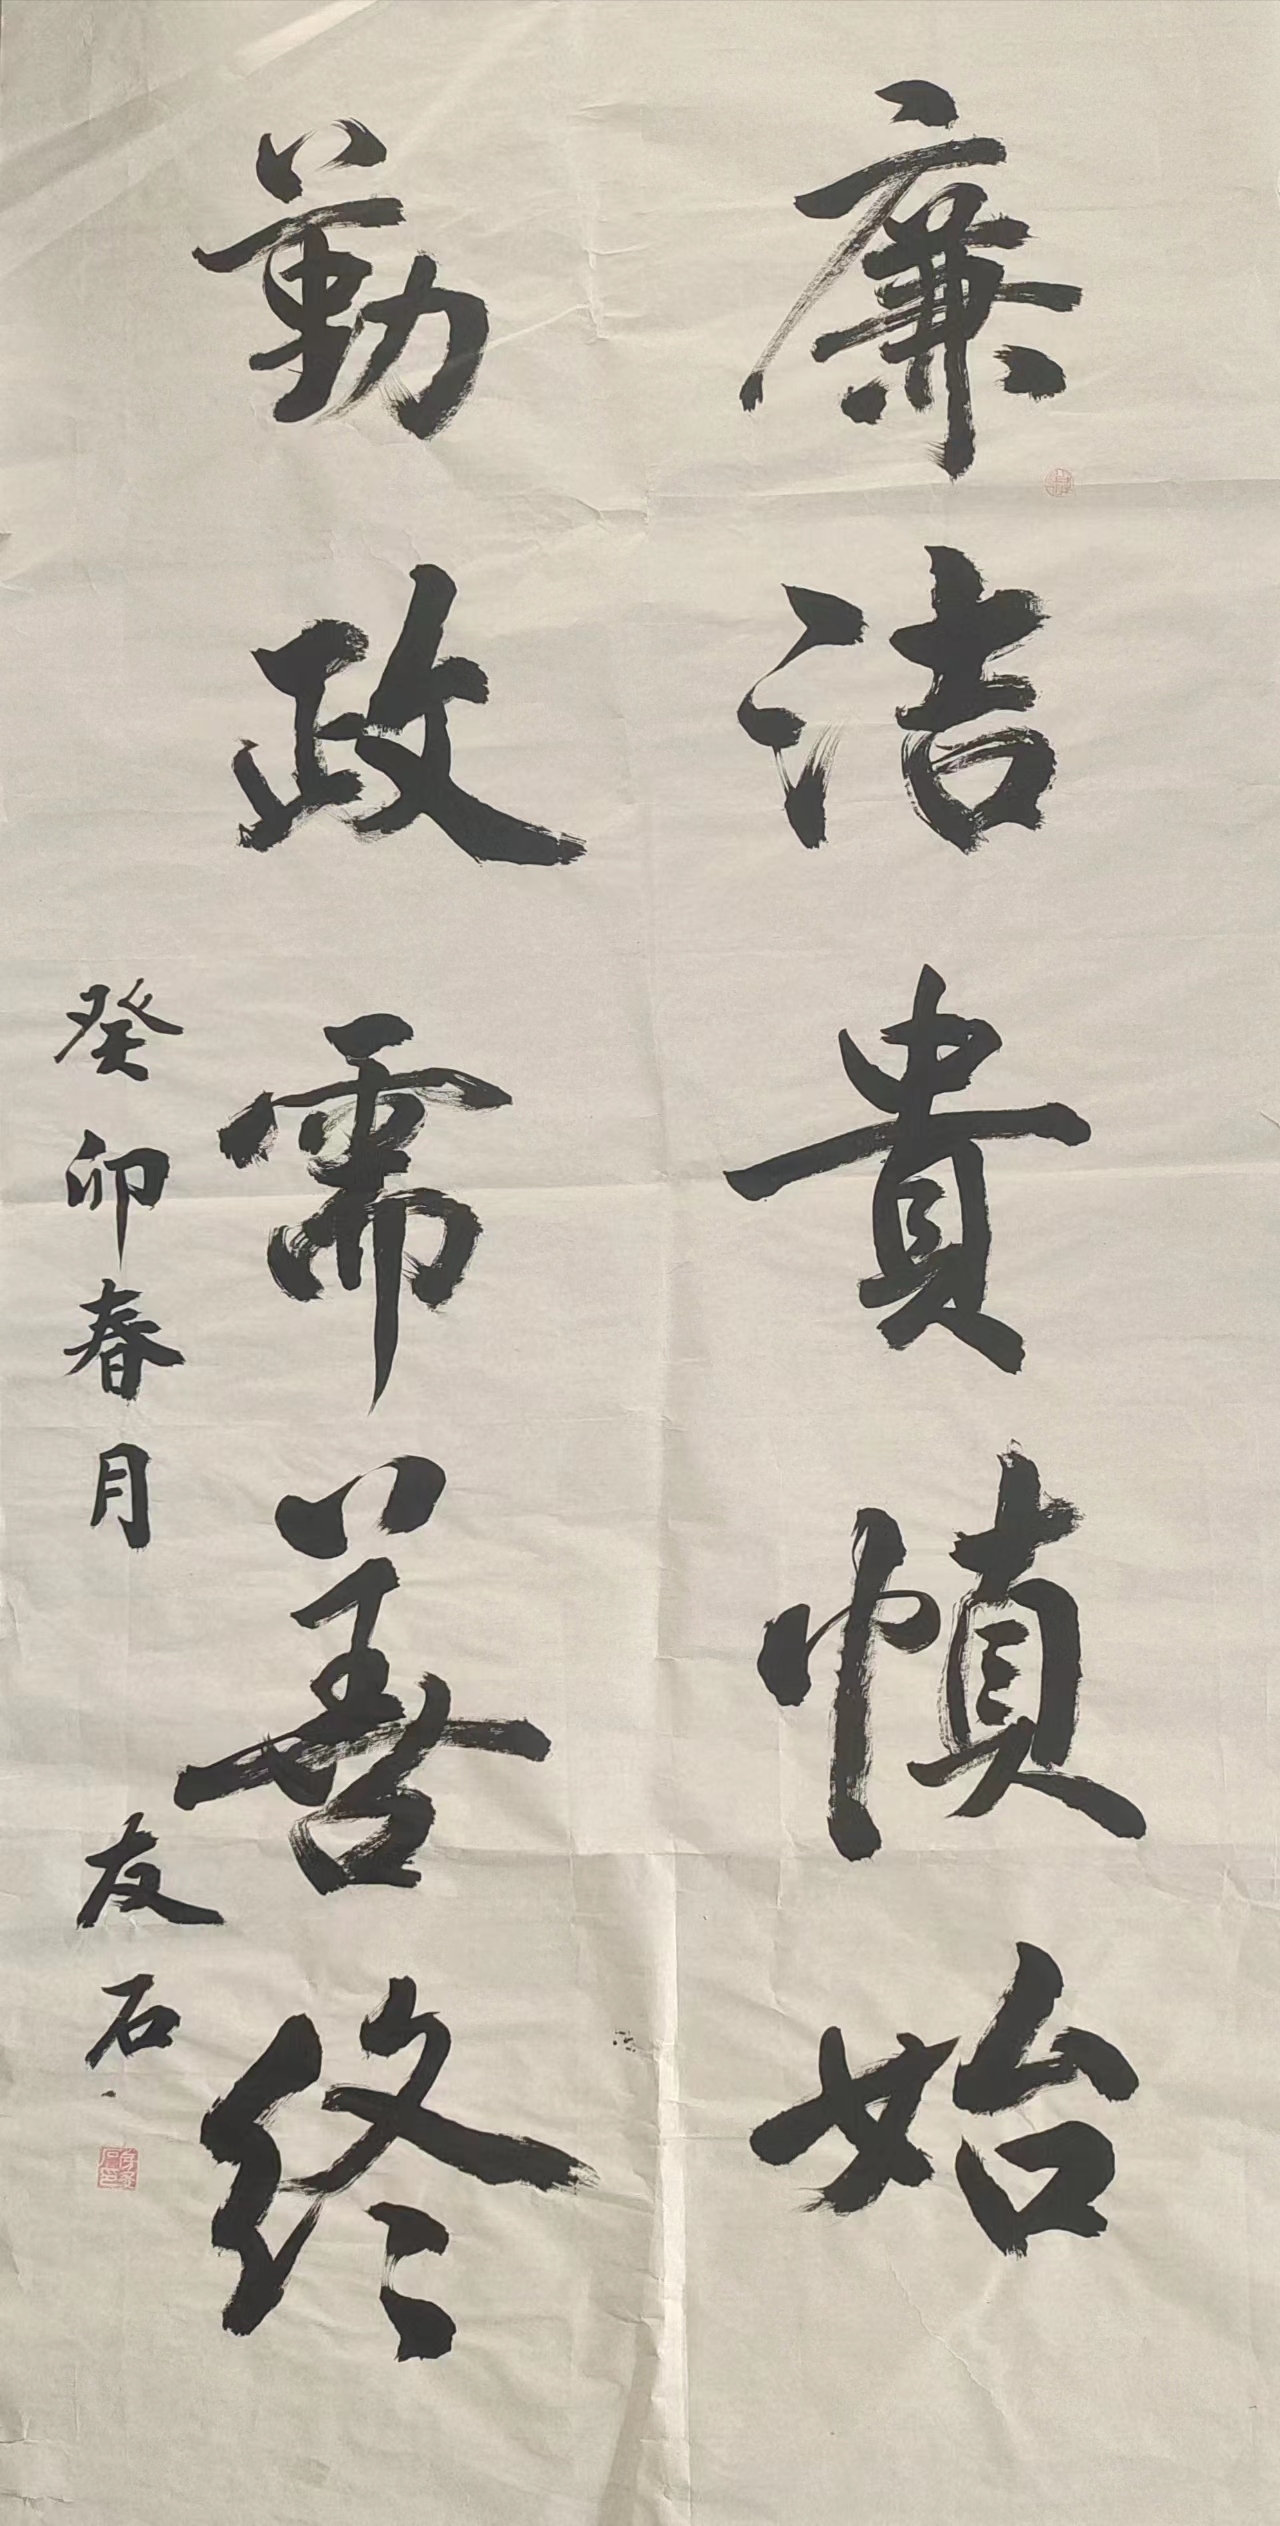 廉洁貴慎始
勤政需善终
癸卯春月 友石